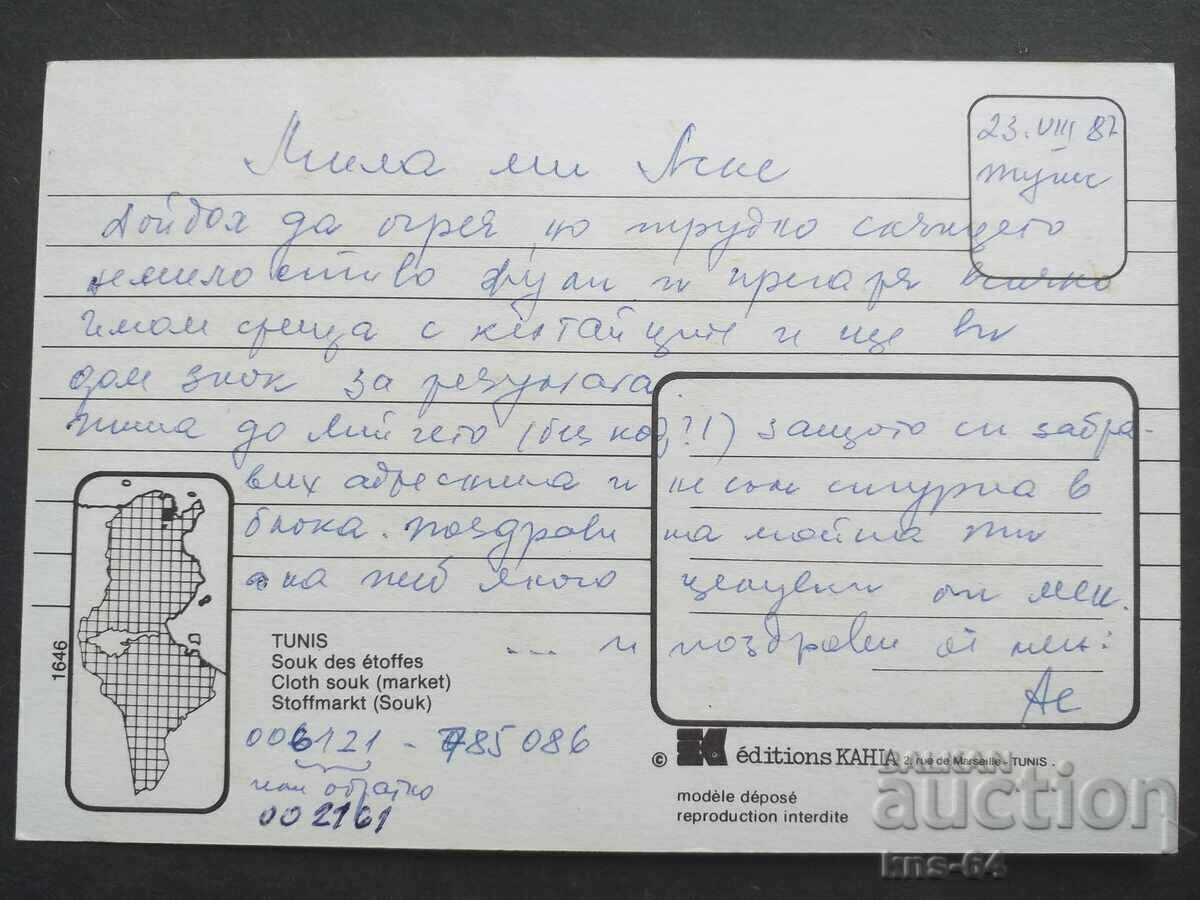 23. VIII 87
Тунис
Мила ми
Дойдох да огрея, но трудно слънцето
немилостиво жули и пригаря всичко
имам среща с китайците и ще ви
дам знак за резултата.
пиша до (без код?!) защото си забра-
вих адресника и не съм сигурна в
блока. поздрави на майка ти
а на теб много целувки от мен.
... и поздрави от мен:
Ас
1646
TUNIS
Souk des étoffes
Cloth souk (market)
Stoffmarkt (Souk)
006121 - 785086
или обратно
002161
© éditions KAHIA 2, rue de Marseille - TUNIS .
modèle déposé
reproduction interdite
BALKAN
auction
kns-64